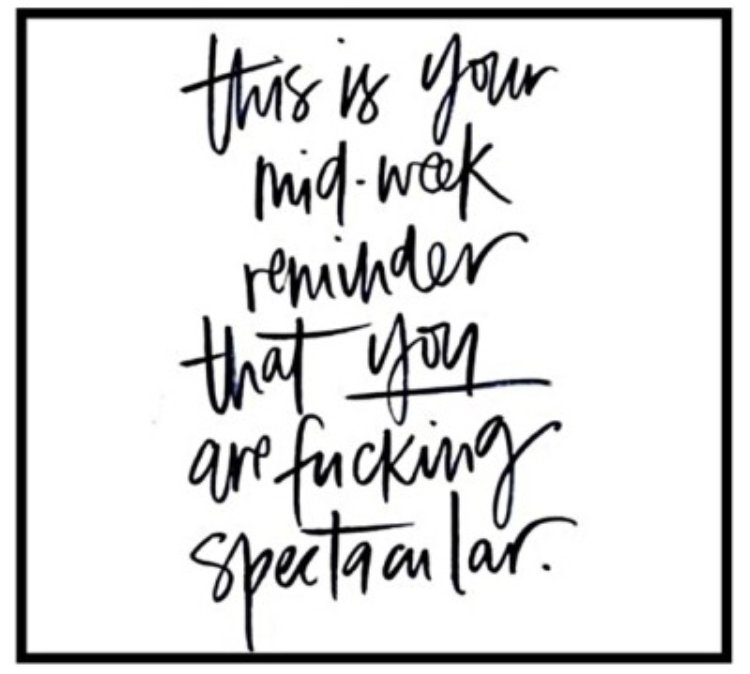 this is your
mid-week
reminder
that you
are fucking
spectacular.